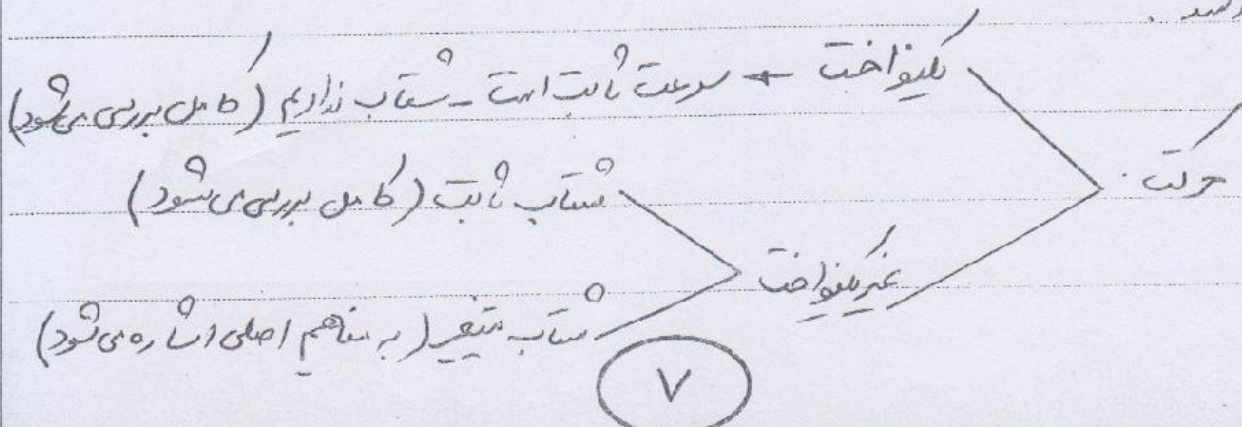 یکنواخت ← سرعت ثابت است - شتاب نداریم (کامل بررسی می‌شود)
حرکت
شتاب ثابت (کامل بررسی می‌شود)
غیریکنواخت
شتاب متغیر (به مفاهیم اصلی اشاره می‌شود)
۷